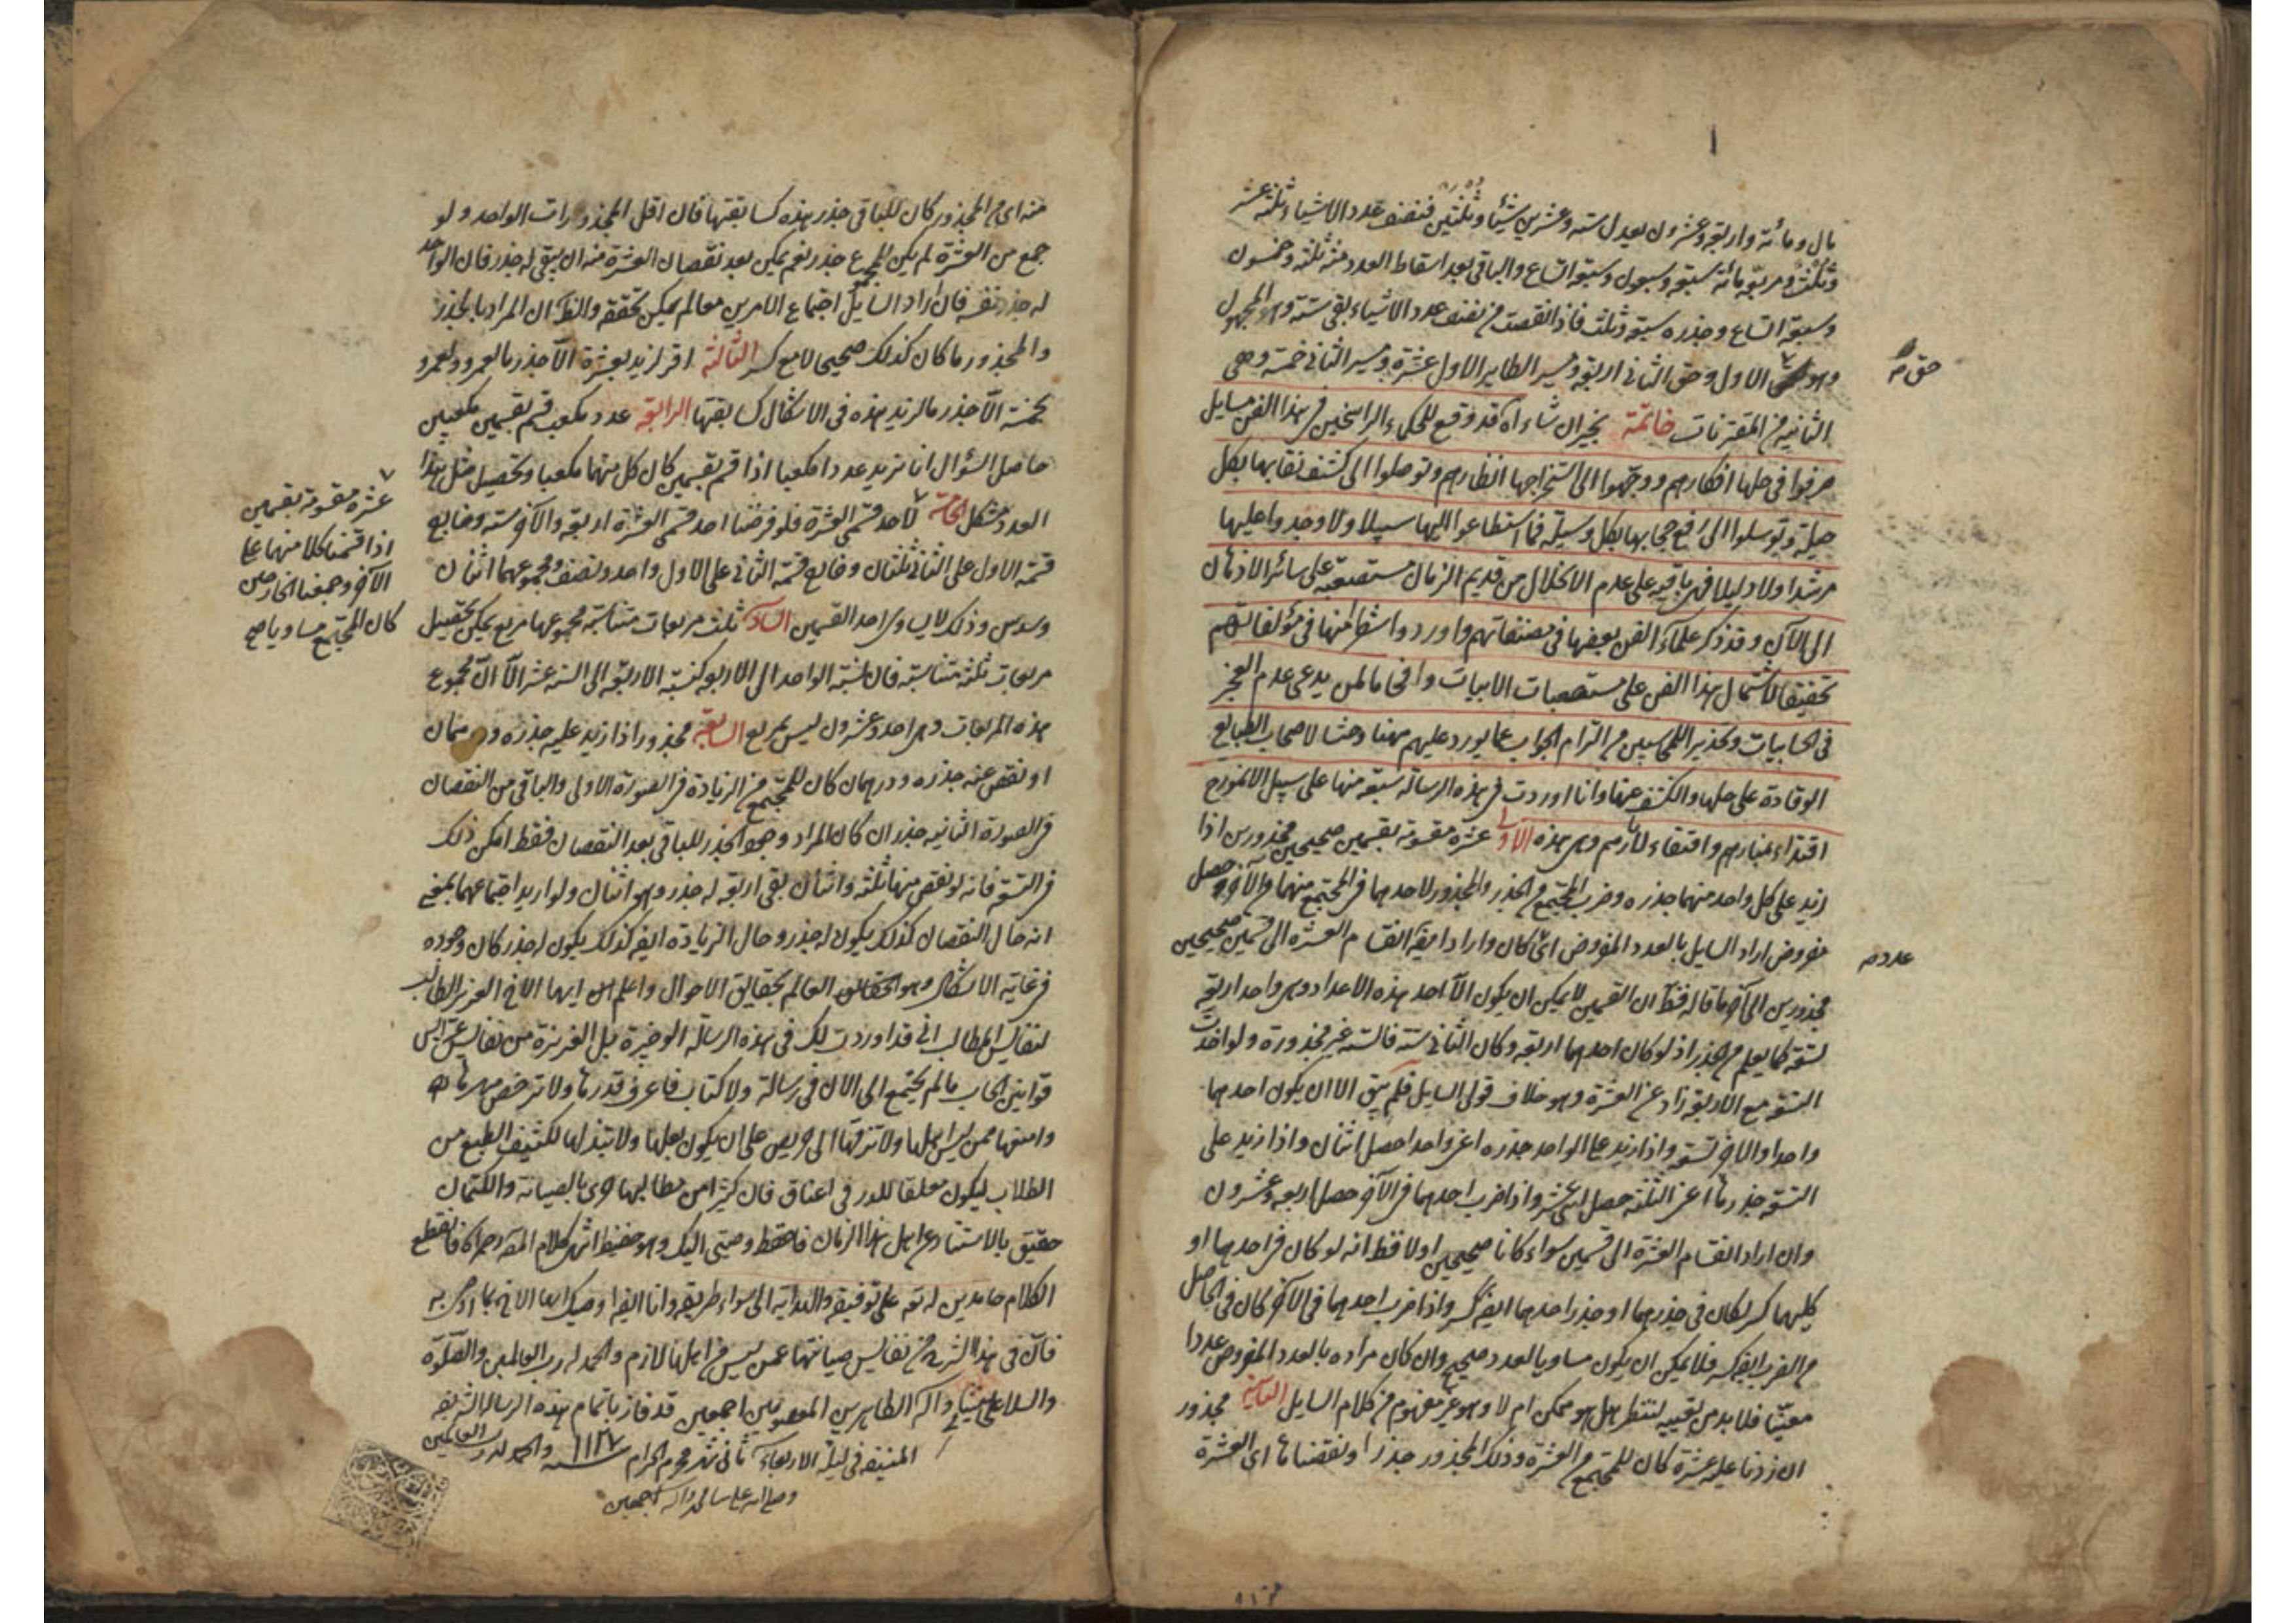 مال ومائة واربعة وعشرون يعدل ستة وعشرين شيئا وثلثين فنصف عدد الاشياء ثلثة عشر
وثلث ومربعه مائة سبعة وسبعون وسبعة اتساع والباقى بعد اسقاط العدد منه ثلثة وخمسون
وسبعة اتساع وجذره سبعة وثلث فاذا نقصت من نصف عدد الاشياء بقى ستة وهو المجهول
وهو الاول وحق الثانى اربعة ومسير الطاير الاول عشرة ومسير الثانى خمسة وهى
حق
الثانية من المقترنات خاتمة بخير ان شاء الله قد وقع للحكماء الراسخين فى هذا الفن مسايل
صرفوا فى حلها افكارهم ووجهوا الى استخراجها انظارهم وتوصلوا الى كشف نقابها بكل
حيلة وتوسلوا الى رفع حجابها بكل وسيلة فما استطاعوا اليها سبيلا ولا وجدوا عليها
مرشدا ولا دليلا فهى باقية على عدم الانحلال من قديم الزمان مستصعبة على سائر الاذهان
الى الآن وقد ذكر علماء الفن بعضها فى مصنفاتهم واوردوا شطرا منها فى مؤلفاتهم
تحقيقا لاشتمال هذا الفن على مستصعبات الابيات وافحاما لمن يدعى عدم العجز
فى الحسابيات وتحذيرا للمحاسبين من التزام الجواب عما يورد عليهم منها وحثا لاصحاب الطبايع
الوقادة على حلها والكشف عنها وانا اوردت فى هذه الرسالة سبعة منها على سبيل الانموذج
اقتداء بمنارهم واقتفاء لآثارهم وهى هذه الاولى عشرة مقسومة بقسمين صحيحين مجذورين اذا
زيد على كل واحد منهما جذره وضرب المجتمع من الجذر والمجذور لاحدهما فى المجتمع منهما من الآخر حصل
مفروض اراد السايل بالعدد المفروض اى كان واراد ايضا انقسام العشرة الى قسمين صحيحين
عدد
مجذورين الى آخر ما قاله فظ ان القسمين لا يمكن ان يكون الا احد هذه الاعداد وهى واحد اربعة
تسعة كما يعلم من الجذر اذ لو كان احدهما اربعة وكان الثانى ستة فالستة غير مجذورة ولو اخذت
التسعة مع الاربعة زاد عن العشرة وهو خلاف قول السايل فلم يبق الا ان يكون احدهما
واحدا والآخر تسعة واذا زيد على الواحد جذره اعنى واحدا حصل اثنان واذا زيد على
التسعة جذرها اعنى الثلثة حصل اثنى عشر واذا ضرب احدهما فى الآخر حصل اربعة وعشرون
وان اراد انقسام العشرة الى قسمين سواء كانا صحيحين اولا فظ انه لو كان فى احدهما او
كليهما كسر لكان فى جذرهما او جذر احدهما ايضا كسر واذا ضرب احدهما فى الآخر كان فى الحاصل
من الضرب ايضا كسر فلا يمكن ان يكون مساويا لعدد صحيح وان كان مراده بالعدد المفروض عددا
معينا فلا بد من تعيينه لننظر هل هو ممكن ام لا وهو غير مفهوم من كلام السايل الثانية مجذور
ان زدنا عليه عشرة كان للمجتمع من العشرة وذلك المجذور جذر او نقصناها اى العشرة
منه اى من المجذور كان للباقى جذر هذه كسابقتها فان اقل المجذورات الواحد ولو
جمع مع العشرة لم يكن للمجموع جذر نعم يمكن بعد نقصان العشرة منه ان يبقى له جذر فان الواحد
له جذر نفسه فان اراد السايل اجتماع الامرين معا لم يمكن تحققه والظ ان المراد بالجذر
والمجذور ما كان كذلك صحيحا لا مع كسر الثالثة اقر لزيد بعشرة الا جذر ما لعمرو ولعمرو
بخمسة الا جذر ما لزيد هذه فى الاشكال كسابقتها الرابعة عدد مكعب قسم بقسمين مكعبين
حاصل السؤال انا نريد عددا مكعبا اذا قسم بقسمين كان كل منهما مكعبا وتحصيل مثل هذا
العدد مشكل الخامسة لاحد قسمى العشرة فلو فرضنا احد قسمى العشرة اربعة والآخر ستة وخارج
عشرة مقسومة بقسمين
اذا قسمنا كلا منهما على
الآخر وجمعنا الخارجين
كان المجتمع مساويا
قسمة الاول على الثانى ثلثان وخارج قسمة الثانى على الاول واحد ونصف ومجموعهما اثنان
وسدس وذلك لا يساوى احد القسمين السادسة ثلث مربعات متناسبة مجموعها مربع يمكن تحصيل
مربعات ثلثة متناسبة فان نسبة الواحد الى الاربعة كنسبة الاربعة الى الستة عشر الا ان مجموع
هذه المربعات وهى احد وعشرون ليس بمربع السابعة مجذور اذا زيد عليه جذره ودرهمان
او نقص عنه جذره ودرهمان كان للمجتمع من الزيادة فى الصورة الاولى والباقى من النقصان
فى الصورة الثانية جذر ان كان المراد وجود الجذر للباقى بعد النقصان فقط امكن ذلك
فى التسعة فانه لو نقص منها ثلثة واثنان بقى اربعة له جذر وهو اثنان ولو اريد اجتماعهما بمعنى
انه حال النقصان كذلك يكون له جذر وحال الزيادة ايضا كذلك يكون له جذر كان وجوده
فى غاية الاشكال وهو العالم بحقايق الاحوال واعلم ايها الاخ العزيز الطالب
لنفايس المطالب انى قد اوردت لك فى هذه الرسالة الوجيزة بل الغريزة من نفايس عرايس
قوانين الحساب ما لم يجتمع الى الآن فى رسالة ولا كتاب فاعرف قدرها ولا ترخص مهرها
وامنعها عمن ليس اهلها ولا تزفها الا الى حريص على ان يكون بعلها ولا تبذلها لكثيف الطبع من
الطلاب ليكون معلقا للدر فى اعناق فان كثيرا من مطالبها حرى بالصيانة والكتمان
حقيق بالاستتار عن اهل هذا الزمان فاحفظ وصيتى اليك وهو حفيظ انتهى كلام المص فانقطع
الكلام حامدين له تعالى على توفيقه والهداية الى سواء طريقه وانا ايضا اوصيك ايها الاخ بما اوصى به
فان فى هذا الشرح من نفايس صيانتها عمن ليس من اهلها لازم والحمد لله رب العالمين والصلوة
والسلام على نبينا وآله الطاهرين المعصومين اجمعين قد فاز باتمام هذه الرسالة الشريفة
المنيفة فى ليلة الاربعاء ثانى شهر محرم الحرام سنة ١١٢٧ والحمد لله رب العالمين
وصلى الله على سيدنا محمد وآله اجمعين